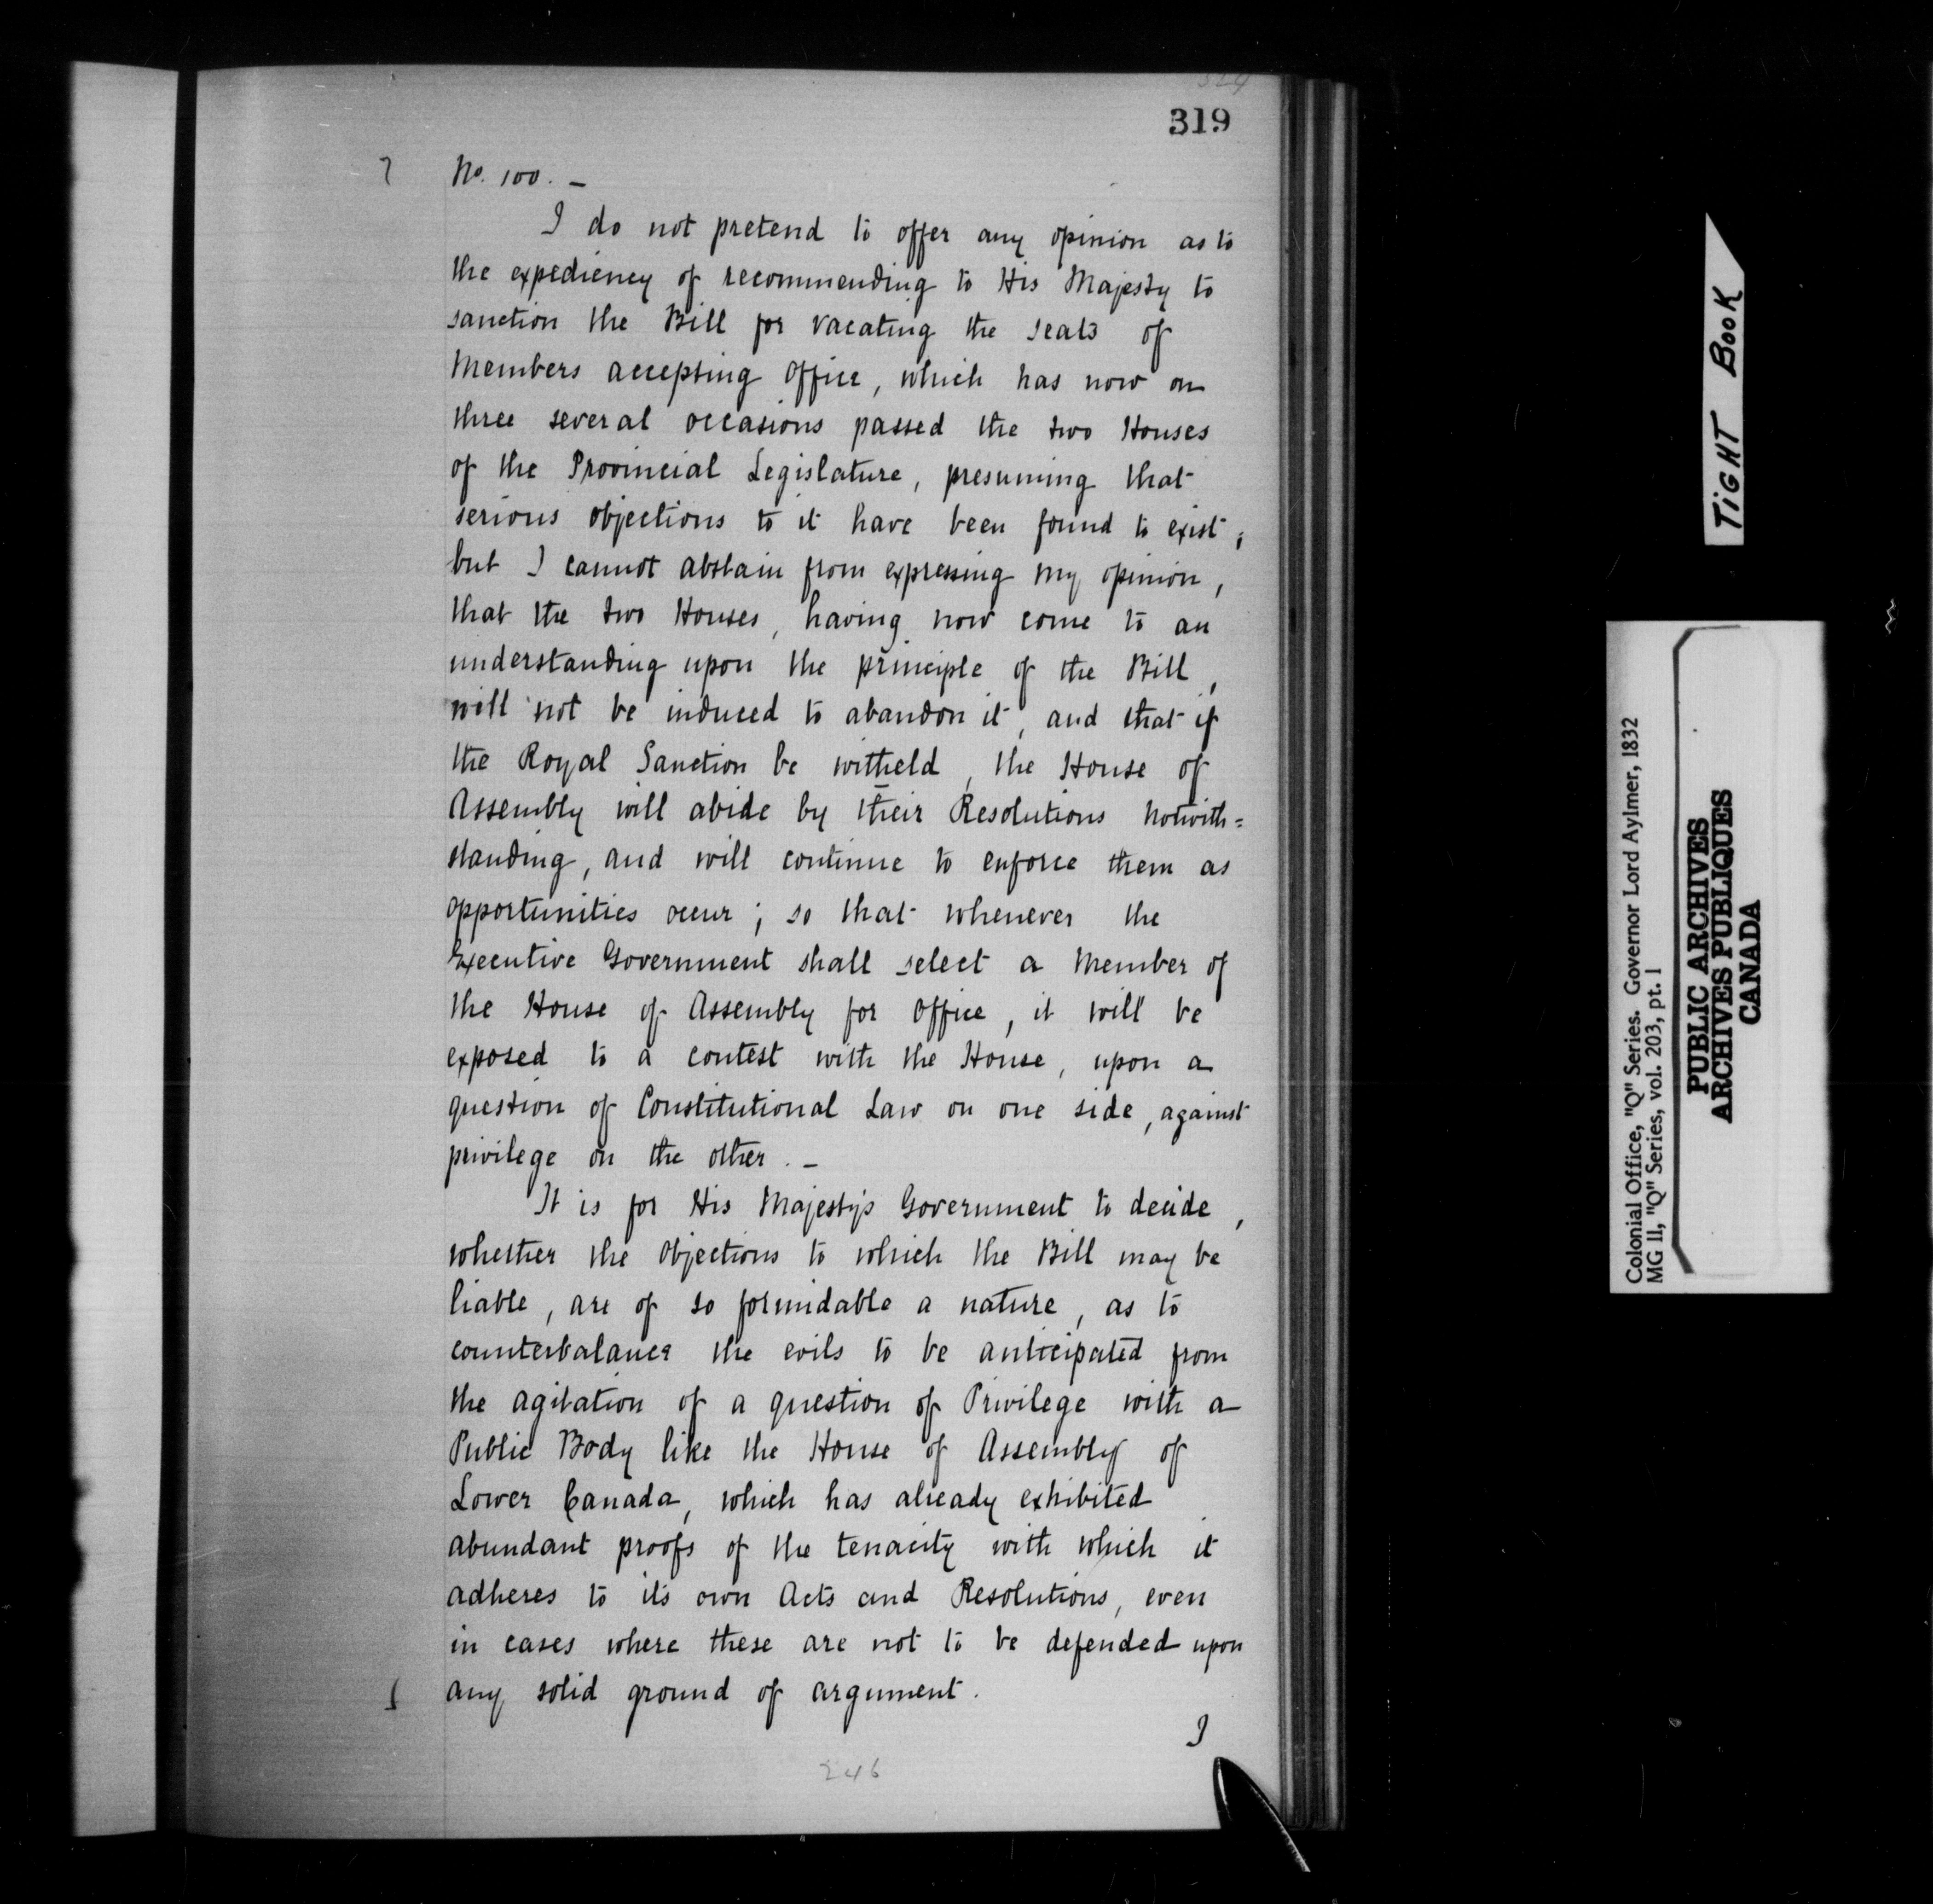 319
No. 100. –
I do not pretend to offer any opinion as to
the expediency of recommending to His Majesty to
sanction the Bill for vacating the seats of
Members accepting office, which has now on
three several occasions passed the two Houses
of the Provincial Legislature, presuming that
serious objections to it have been found to exist;
but I cannot abstain from expressing my opinion,
that the two Houses, having now come to an
understanding upon the principle of the Bill,
will not be induced to abandon it, and that if
the Royal Sanction be witheld, the House of
Assembly will abide by their Resolutions notwith=
standing, and will continue to enforce them as
opportunities occur; so that whenever the
Executive Government shall select a Member of
the House of Assembly for office, it will be
exposed to a contest with the House, upon a
question of Constitutional Law on one side, against
privilege on the other. –
It is for His Majesty's Government to decide,
whether the objections to which the Bill may be
liable, are of so formidable a nature, as to
counterbalance the evils to be anticipated from
the agitation of a question of Privilege with a
Public Body like the House of Assembly of
Lower Canada, which has already exhibited
abundant proofs of the tenacity with which it
adheres to its own Acts and Resolutions, even
in cases where these are not to be defended upon
any solid ground of argument.
I
246
TIGHT BOOK
Colonial Office, "Q" Series. Governor Lord Aylmer, 1832
MG 11, "Q" Series, vol. 203, pt. 1
PUBLIC ARCHIVES
ARCHIVES PUBLIQUES
CANADA